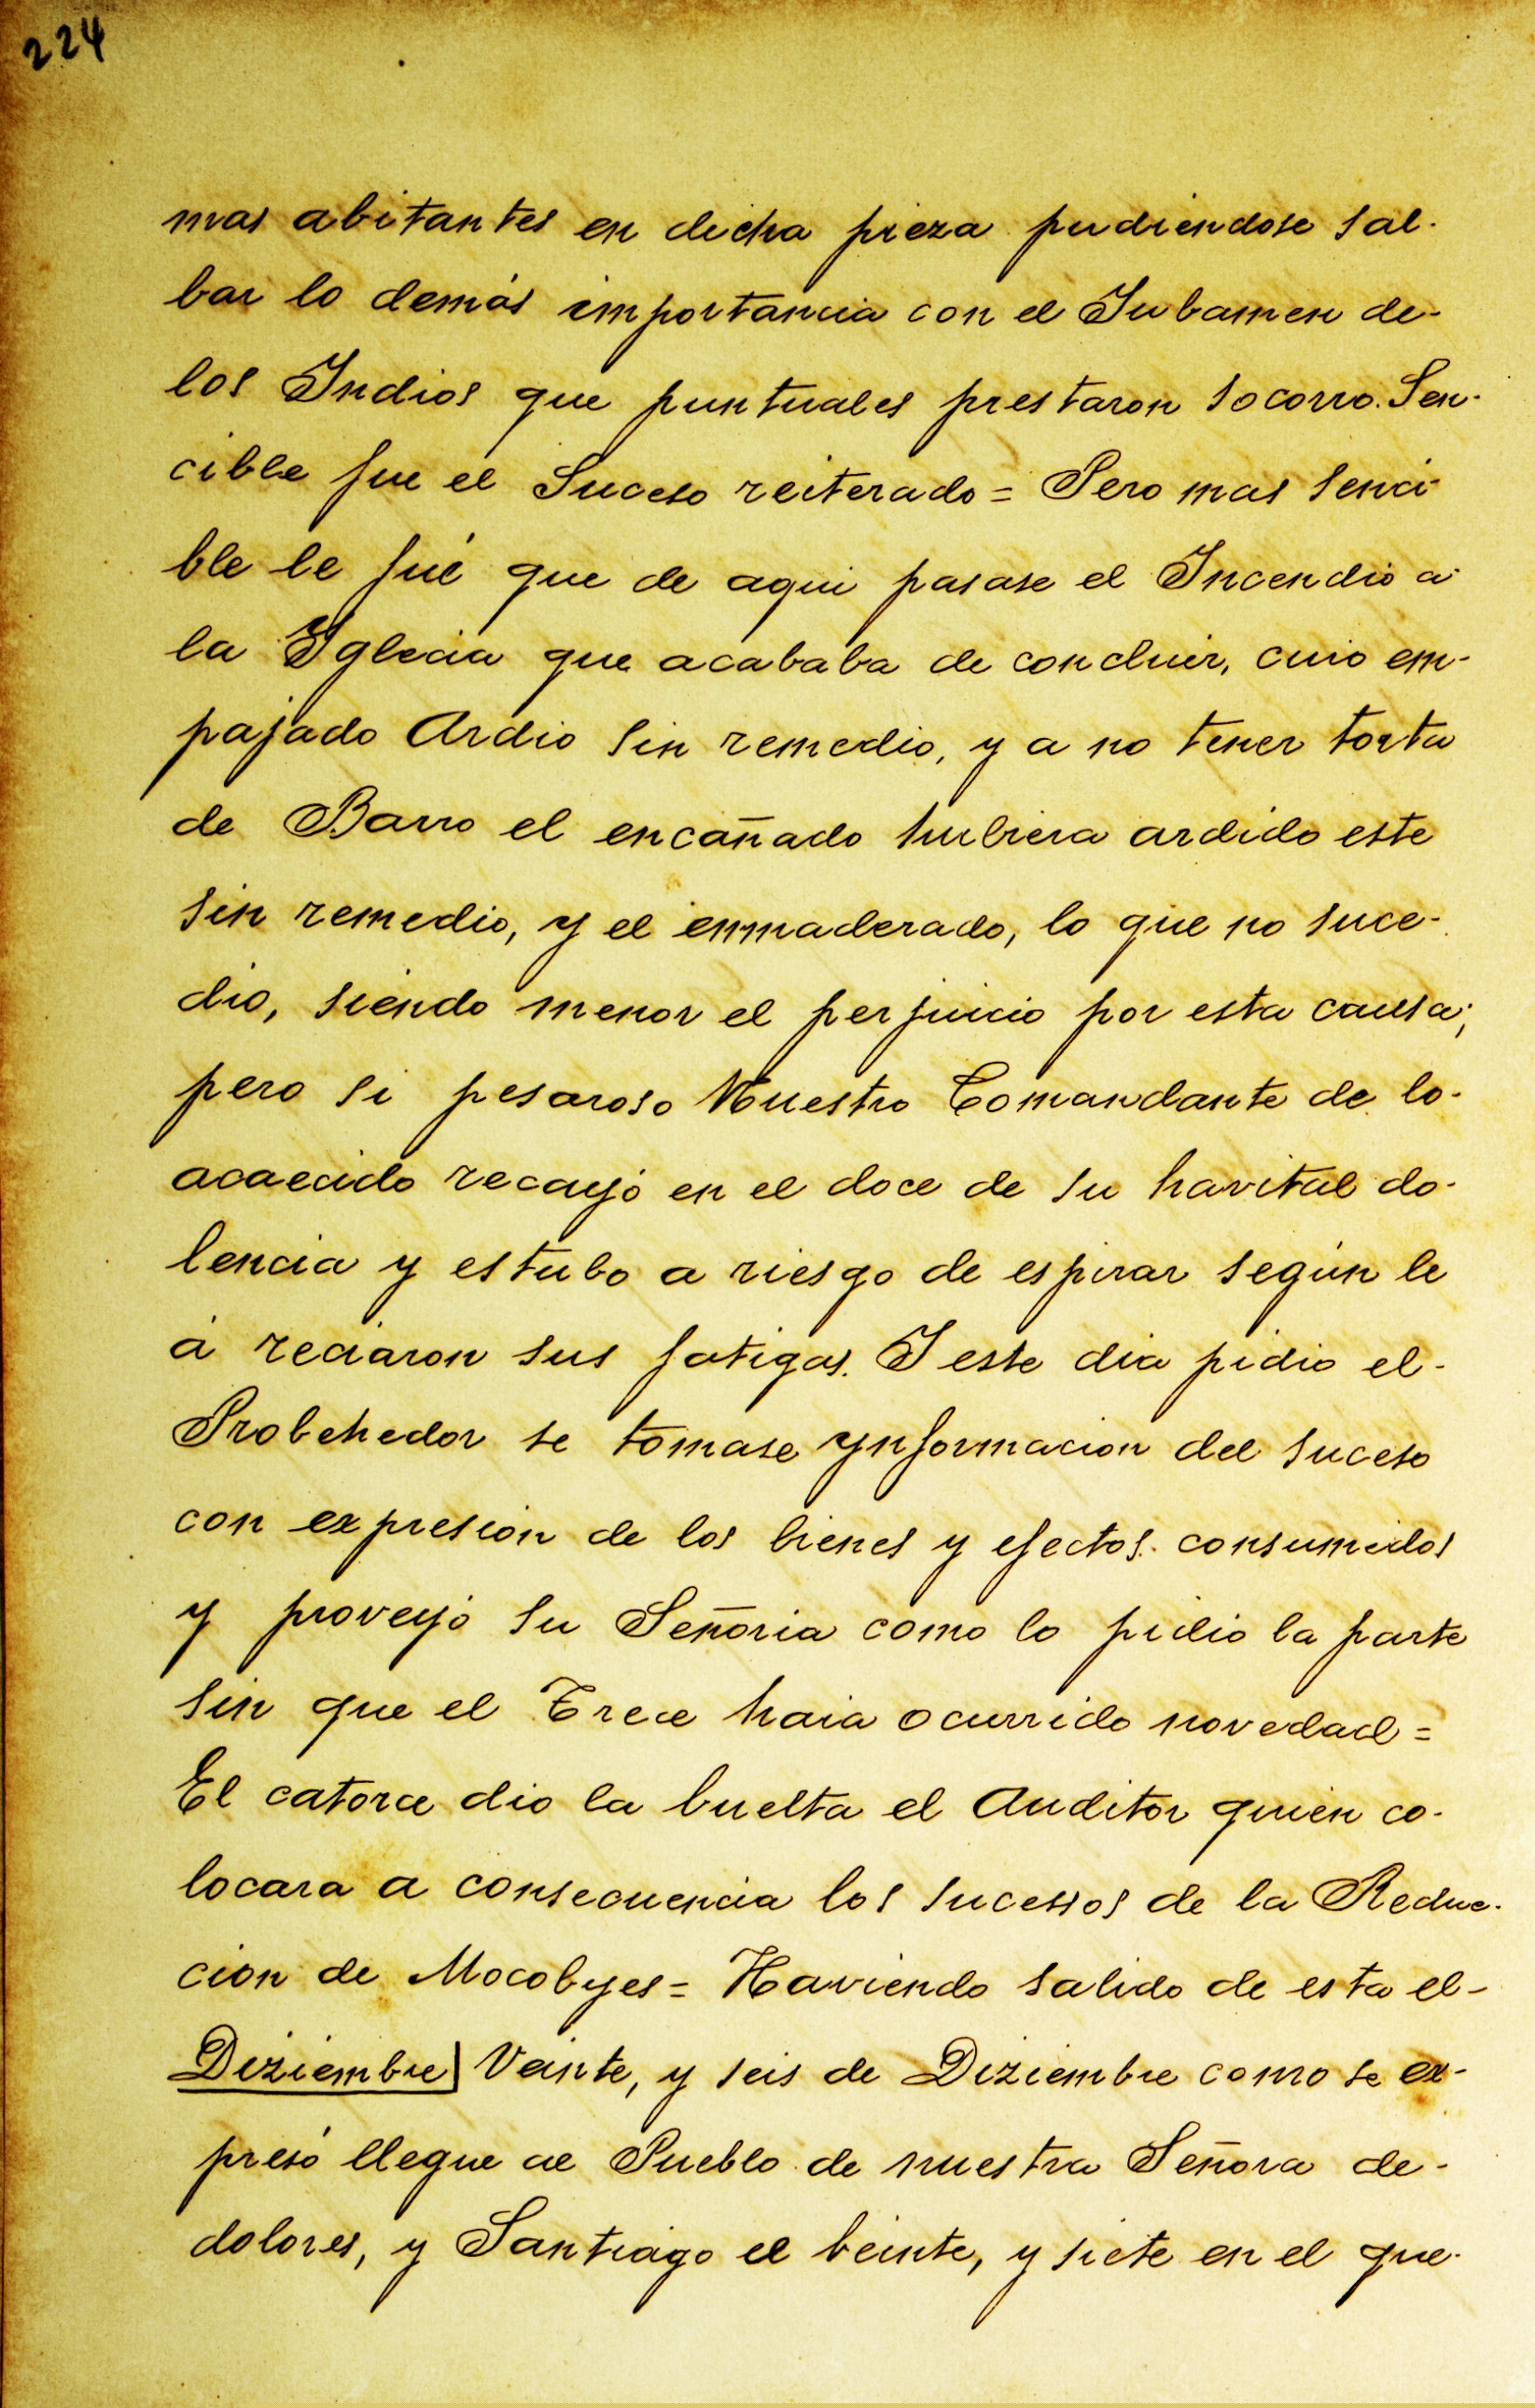 224
mas abitantes en dicha pieza pudiendose sal-
bar lo demás importancia con el Jubamen de-
los Indios que puntuales prestaron socorro. Sen-
cible fue el Suceso reiterado = Pero mas senci-
ble le fué que de aqui pasase el Incendio a
la Iglecia que acababa de concluir, cuio em-
pajado Ardio sin remedio, y a no tener torta
de Barro el encañado hubiera ardido este
sin remedio, y el enmaderado, lo que no suce-
dio, siendo menor el perjuicio por esta causa;
pero si pesaroso Nuestro Comandante de lo-
acaecido recayó en el doce de su havital do-
lencia y estubo a riesgo de espirar según le
á reciaron sus fatigas. I este dia pidio el-
Probehedor se tomase ynformacion del suceso
con expresion de los bienes y efectos consumidos
y proveyó su Señoria como lo pidio la parte
sin que el Trece haia ocurrido novedad =
El catorce dio la buelta el Auditor quien co-
locara a consecuencia los sucessos de la Reduc-
cion de Mocobyes = Haviendo salido de esta el-
Diziembre| Veinte, y seis de Diziembre como se ex-
presó llegue al Pueblo de nuestra Señora de-
dolores, y Santiago el beinte, y siete en el que-